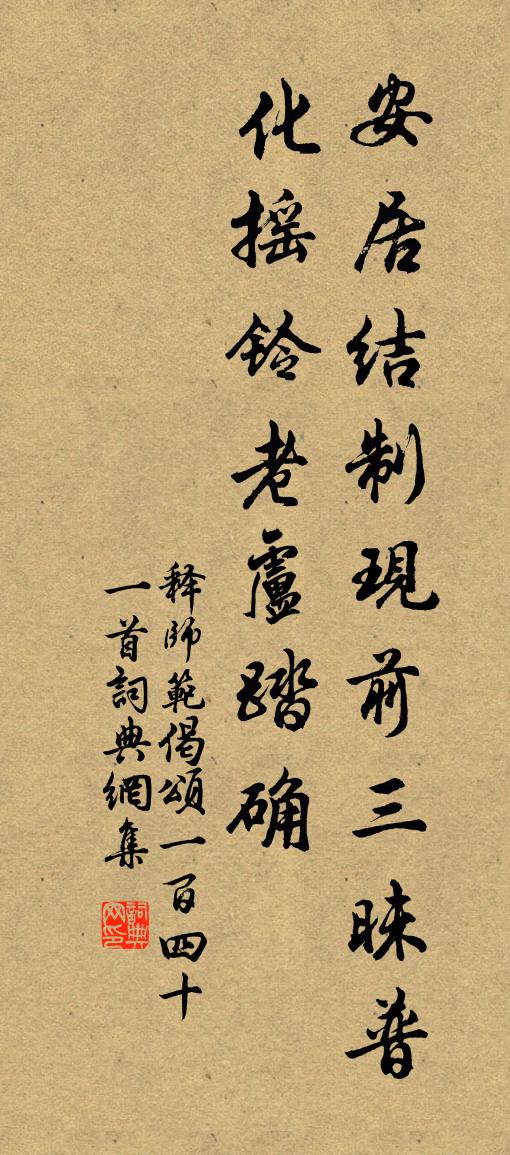 安居结制現前三昧普
化摇铃老盧踏确
释師範偈頌一百四十
一首詞典網集
詞典网印